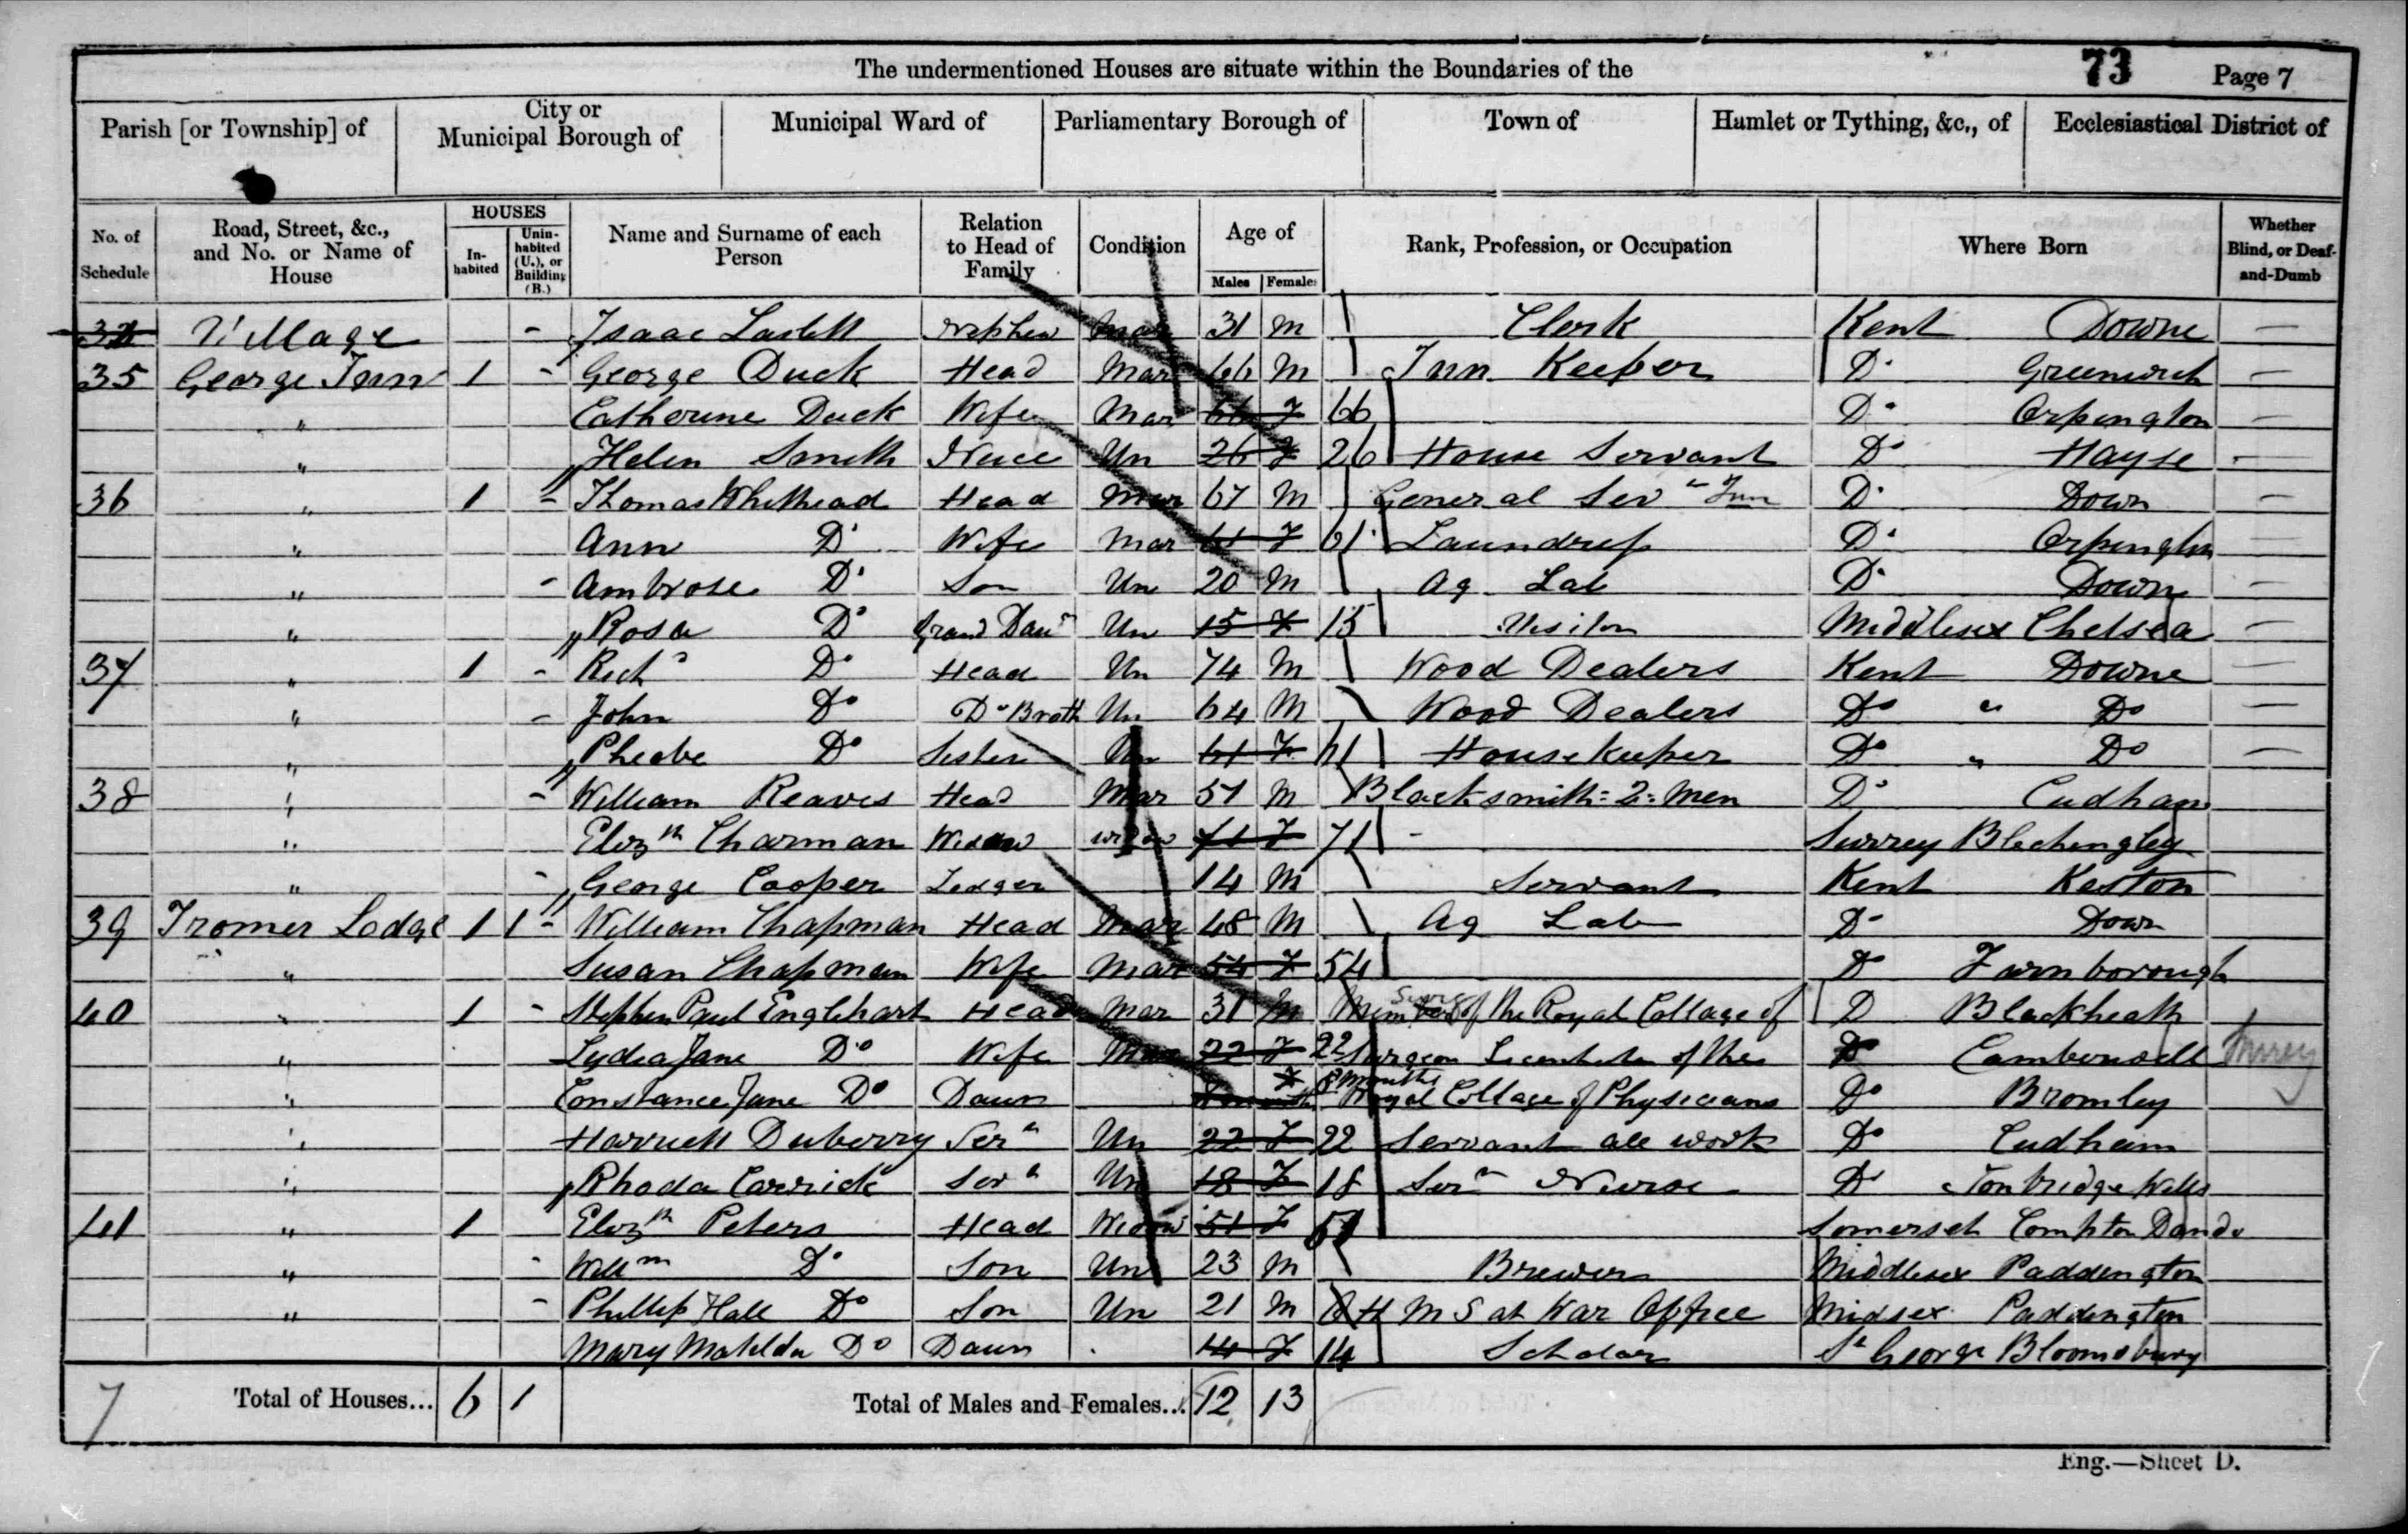 The undermentioned Houses are situate within the Boundaries of the
73 Page 7
Parish [or Township] of City or Municipal Borough of Municipal Ward of Parliamentary Borough of Town of Hamlet or Tything, &c., of Ecclesiastical District of
No. of Schedule Road, Street, &c., and No. or Name of House HOUSES In-habited Unin-habited (U.), or Building (B.) Name and Surname of each Person Relation to Head of Family Condition Age of Males Females Rank, Profession, or Occupation Where Born Whether Blind, or Deaf-and-Dumb
34 Village Isaac Laslett nephew Mar 31 M Clerk Kent Downe
35 George Inn 1 George Duck Head Mar 66 M Inn Keeper Do Greenwich
" Catherine Duck Wife Mar 66 F 66 Do Orpington
" Helen Smith Niece Un 26 F 26 House Servant Do Hayse
36 " 1 Thomas Whithead Head Mar 67 M General Servt Inn Do Down
" Ann Do Wife Mar 61 F 61 Laundress Do Orpington
" Ambrose Do Son Un 20 M Ag Lab Do Down
" Rosa Do Grand Daur Un 15 F 15 Visitor Middlesex Chelsea
37 " 1 Richd Do Head Un 74 M Wood Dealers Kent Downe
" John Do Do Broth Un 64 M Wood Dealers Do " Do
" Pheobe Do Sister Un 61 F 61 House Keeper Do " Do
38 " William Reaves Head Mar 51 M Blacksmith: 2: Men Do Cudham
" Elizth Charman Widow widow 71 F 71 - Surrey Blechingley
" George Cooper Lodger 14 M Servant Kent Keston
39 Tromer Lodge 1 1 William Chapman Head Mar 48 M Ag Lab Do Down
" Susan Chapman Wife Mar 54 F 54 Do Farnborough
40 " 1 Stephen Paul Englehart Head Mar 31 M Member of the Royal Collage of D Blackheath
" Lydia Jane Do Wife Mar 22 F 22 Surgeon Licentiate of the Do Camberwell Surrey
" Constance Jane Do Daur F 8 Months Royal Collage of Physicians Do Bromley
" Harriett Duberry Sert Un 22 F 22 Servant all work Do Cudham
" Rhoda Carrick Servt Un 18 F 18 Sert Nurse Do Tonbridge Wells
41 " 1 Elizth Peters Head Widow 51 F 51 Somerset Compton Dando
" Willm Do Son Un 23 M Brewer Middlesex Paddington
" Phillip Hall Do Son Un 21 M H M S at War Office Midsex Paddington
Mary Matilda Do Daur 14 F 14 Scholar St George Bloomsbury
7 Total of Houses... 6 1 Total of Males and Females... 12 13
Eng.—Sheet D.